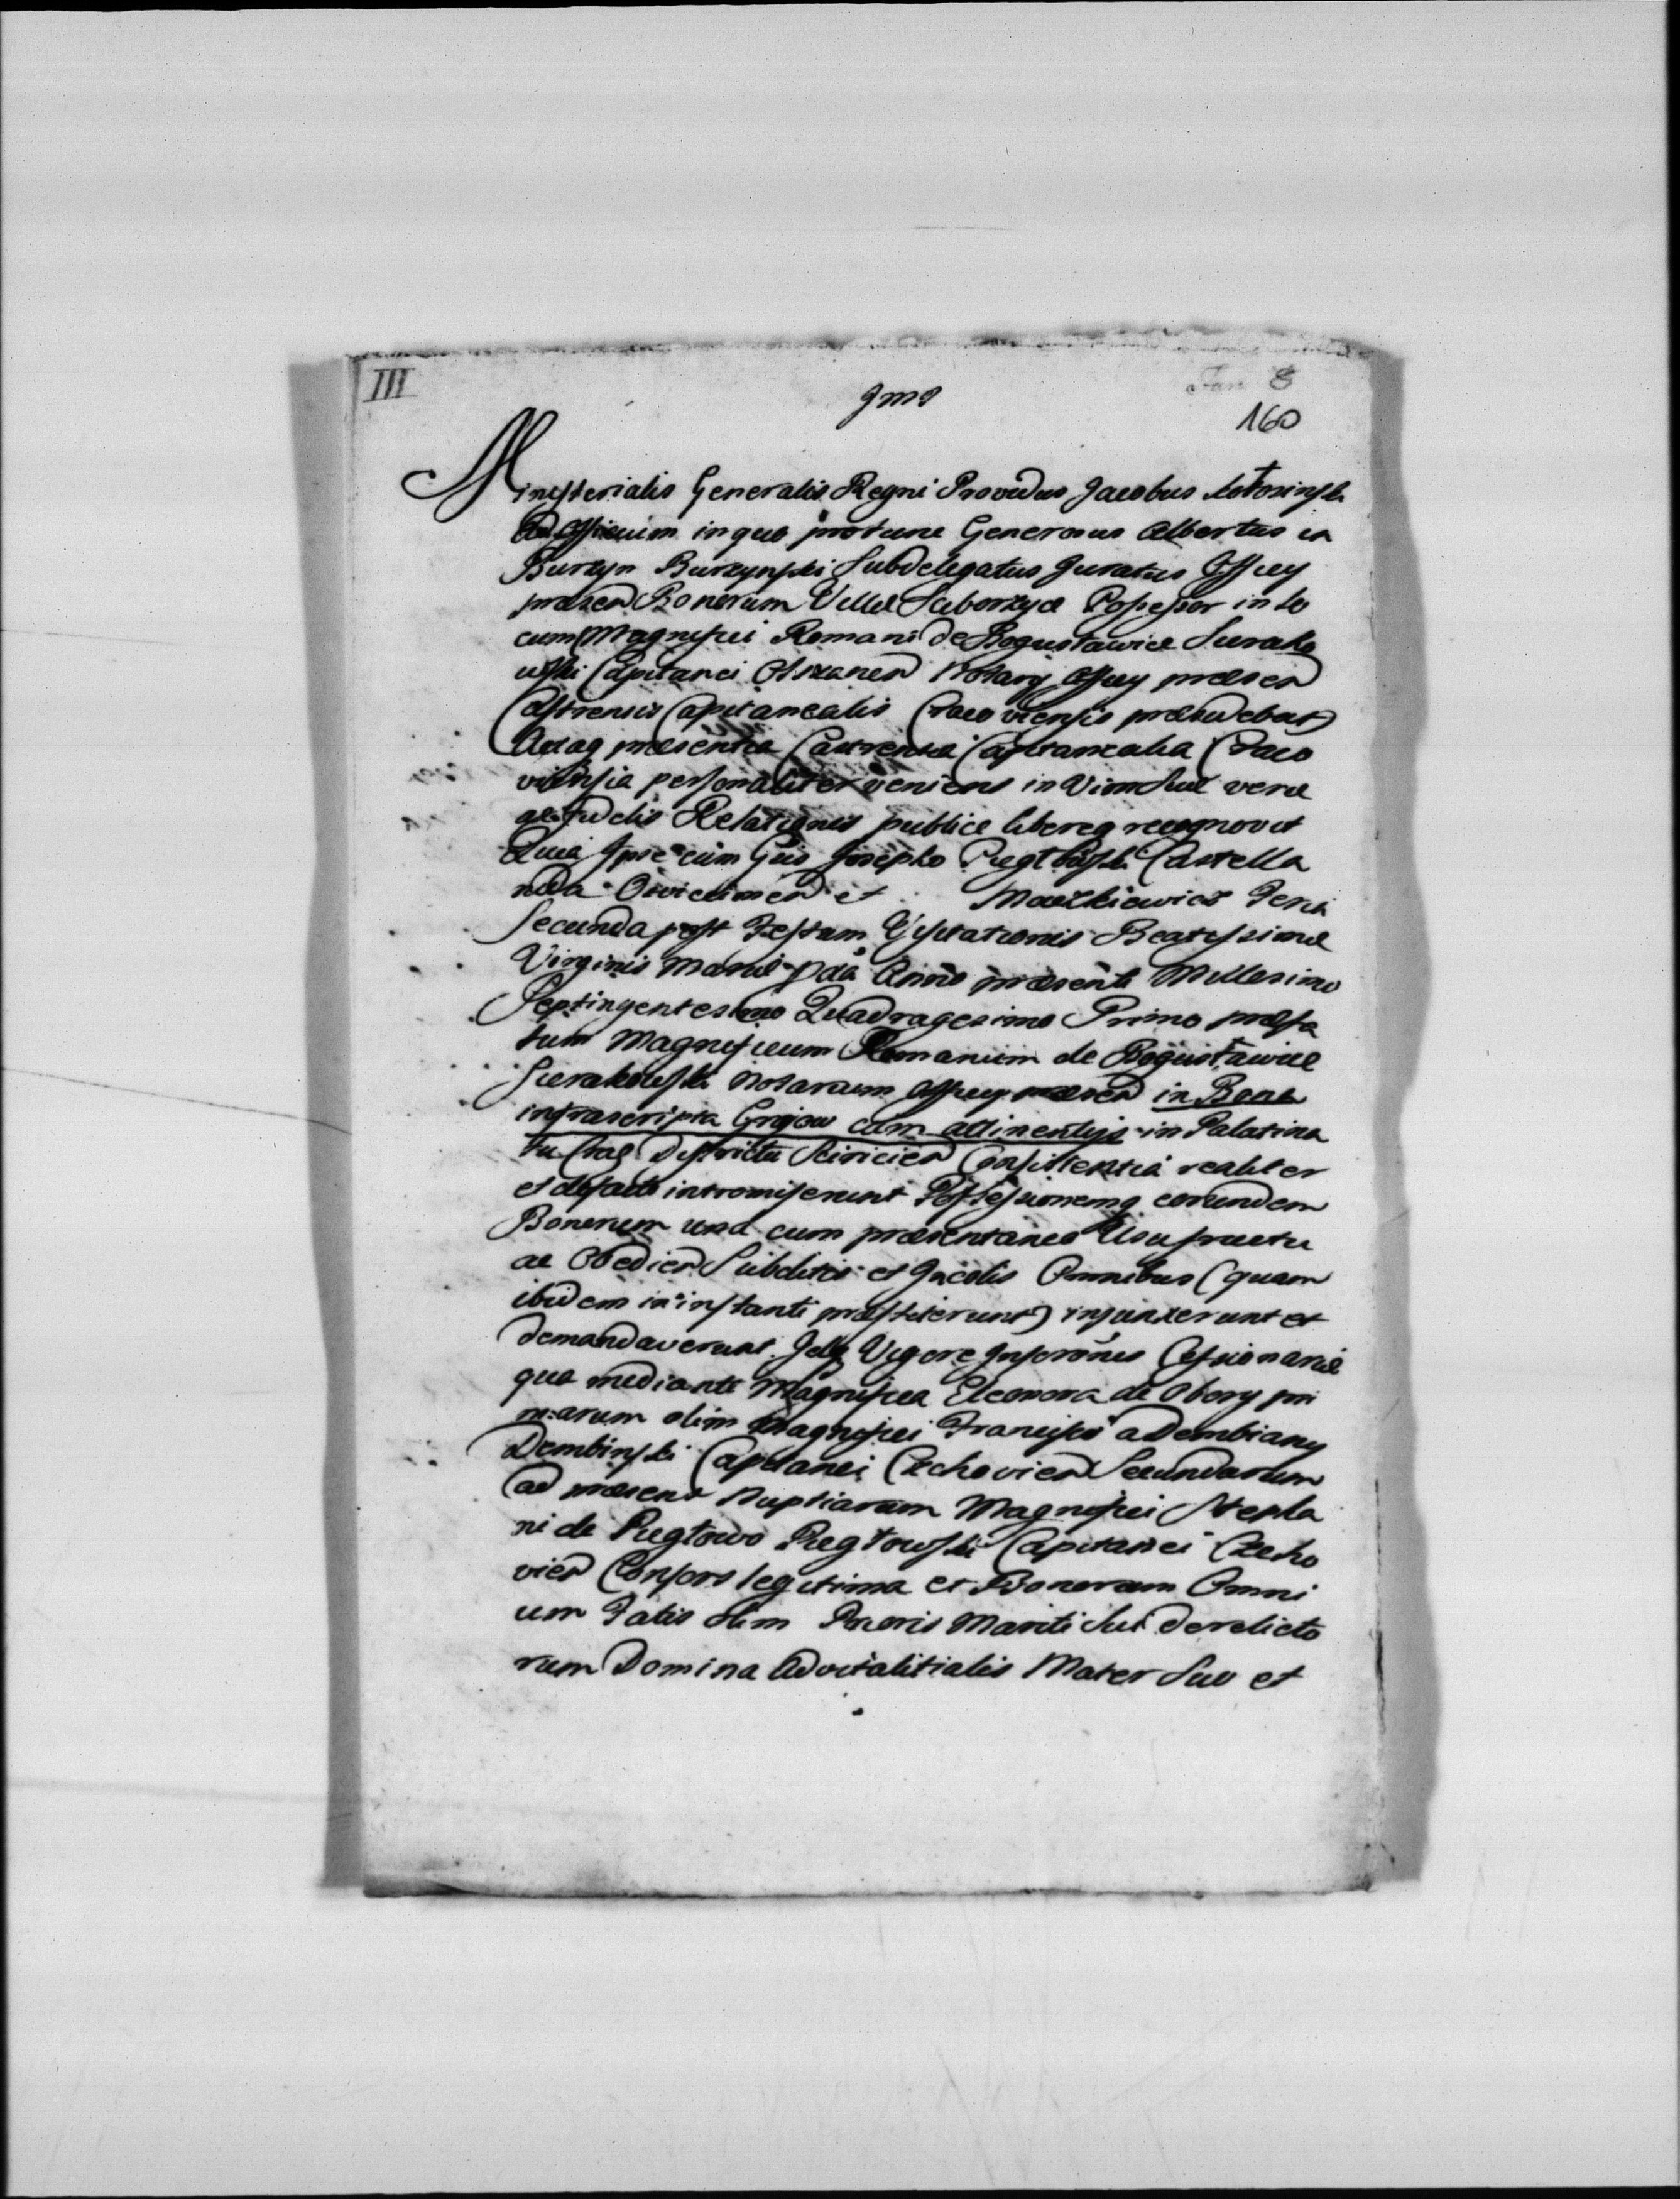 III
Jmo
Fasc 8
160
Ministerialis Generalis Regni Providus Jacobus
ad Officium in quo protunc Generosus Albertus in
Burzyn Burzynski Subdelegatus Juratus Officy
præsen Bonorum Villæ Siborzyce Possessor in lo
cum Magnifici Romani de Bogusławice Sierako
wski Capitanei Olszanen Notary Officy præsen
Castrensis Capitanealis Cracoviensis præsidebat
Actaq præsentia Castrensia Capitanealia Craco
viensia personaliter veniens in Vim Suæ veræ
ac fidelis Relationis publice libereq recognovit
Quia Ipse cum Gsis Josepho Piegłowski Castella
nida Oswiecimen et Maczkiewicz Feria
Secunda post Festum Visitationis Beatissimæ
Virginis Mariæ pdā Anno præsenti Millesimo
Septingentesimo Quadragesimo Primo præfa
tum Magnificum Romanum de Bogusławice
Sierakowski Notarium Officy præsen in Bona
infrascripta Grojow cum attinentijs in Palatina
tu Crac Districtu Sciricien Consistentia realiter
et defacto intromiserunt Possessionemq eorundem
Bonorum una cum præsentaneo Usufructu
ac Obedien Subditis et Incolis Omnibus (quam
ibidem in instanti præstiterunt) injunxerunt et
demandaverunt. Idq Vigore Inscrōnis Cessionariæ
qua mediante Magnifica Eleonora de Obory pri
marum olim Magnifici Francisci a Dembiany
Dembinski Capitanei Czchovien Secundarum
ad præsens Nuptiarum Magnifici Stepha
ni de Piegłowo Piegłowski Capitanei Czcho
vien Consors legitima et Bonorum Omni
um Fatis olim Prioris Mariti Sui derelicto
rum Domina Advitalitialis Mater Suo et